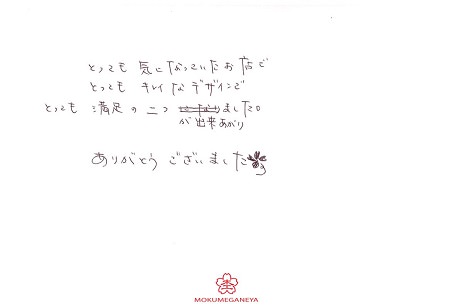 とっても 気に なっていた お店で
とっても キレイな デザインで
とっても 満足の 二つ ました。
が出来あがり
ありがとう ございました
MOKUMEGANEYA